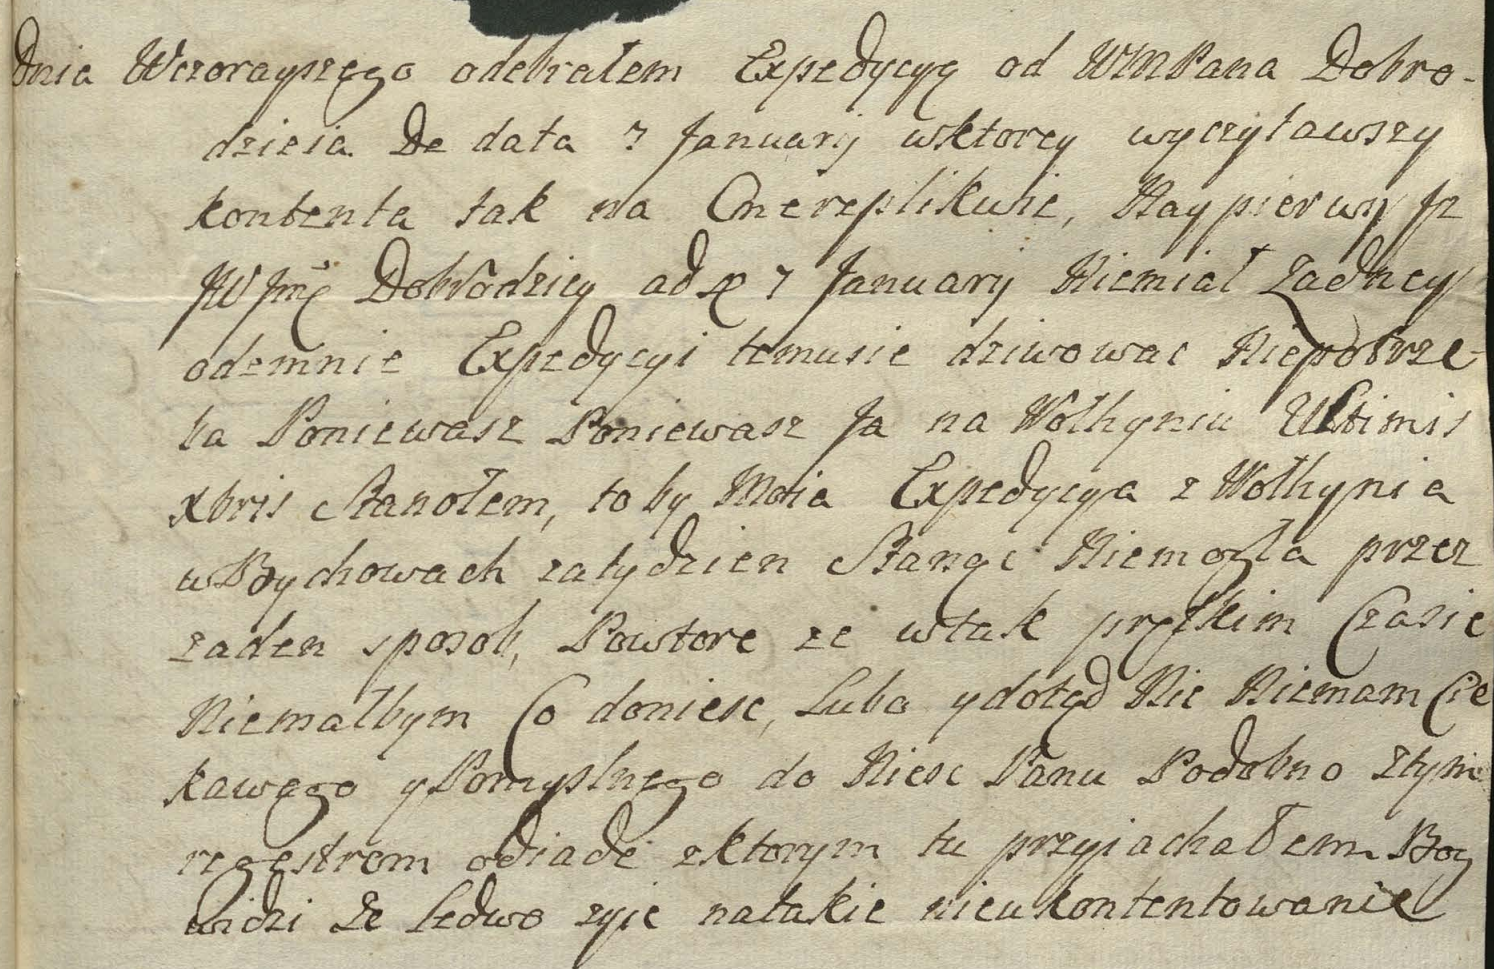 Dnia Wczorayszego odebrałem Expedycyą od WMPana Dobro-
dzieia De data 7 January wktorey wyczytawszy
kontenta tak na One replikuie, Naypierwy Jz
JWJmć Dobrodziey ad 7 January Niemiał Zadney
odemnie Expedycyi temusie dziwowac Niepotrze-
ba Poniewasz Poniewasz Ja na Wołhyniu Ultimis
Xbris Stanołem, to by Moia Expedycya z Wołhynia
w Bychowach zatydzien Stanąc Niemogła przez
zaden sposob, Powtore ze wtak prętkim Czasie
Niemałbym Co doniesc, Lubo ydotąd Nic Niemam Cie
kawego y Pomyslnego do Niesc Panu Podobno Ztym
regestrem odiade zktorym tu przyiachałem Bog
widzi Ze Ledwo zyie natakie nieukontentowanie